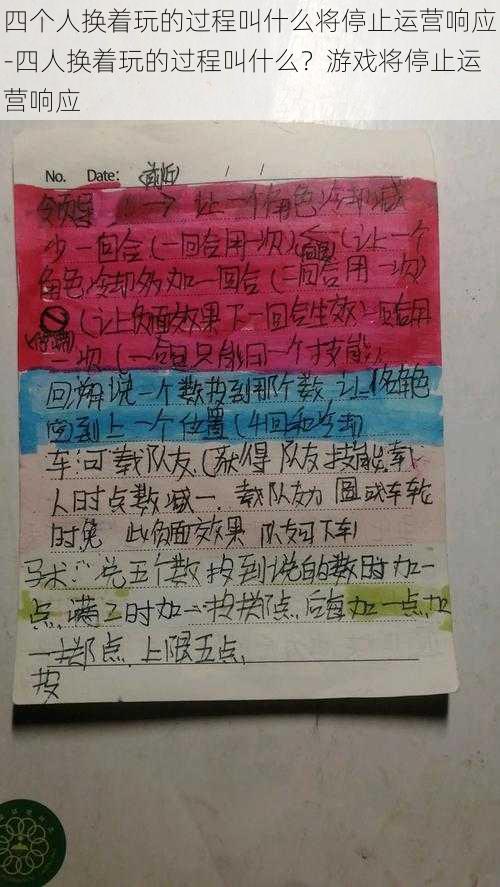 四个人换着玩的过程叫什么将停止运营响应
-四人换着玩的过程叫什么？游戏将停止运
营响应
No. Date: / /
让一个角色冷却减
少一回合(一回合用一次) (让上一个
角色冷却多加一回合(三回合用一次)
(让负面效果下一回合生效)一回合用
一次(一合只能用一个技能)
回 说一个数投到那个数让 角色
到上一个位置(4回合冷却)
车:可载队友(获得队友技能,载
人时点数减一,载队友为圆或车轮
时免 此负面效果 队友可下车)
马术: 说五个数投到说的数时加一
点,满 时加一 掷点,后每加一点,加
一 掷点,上限五点,
按